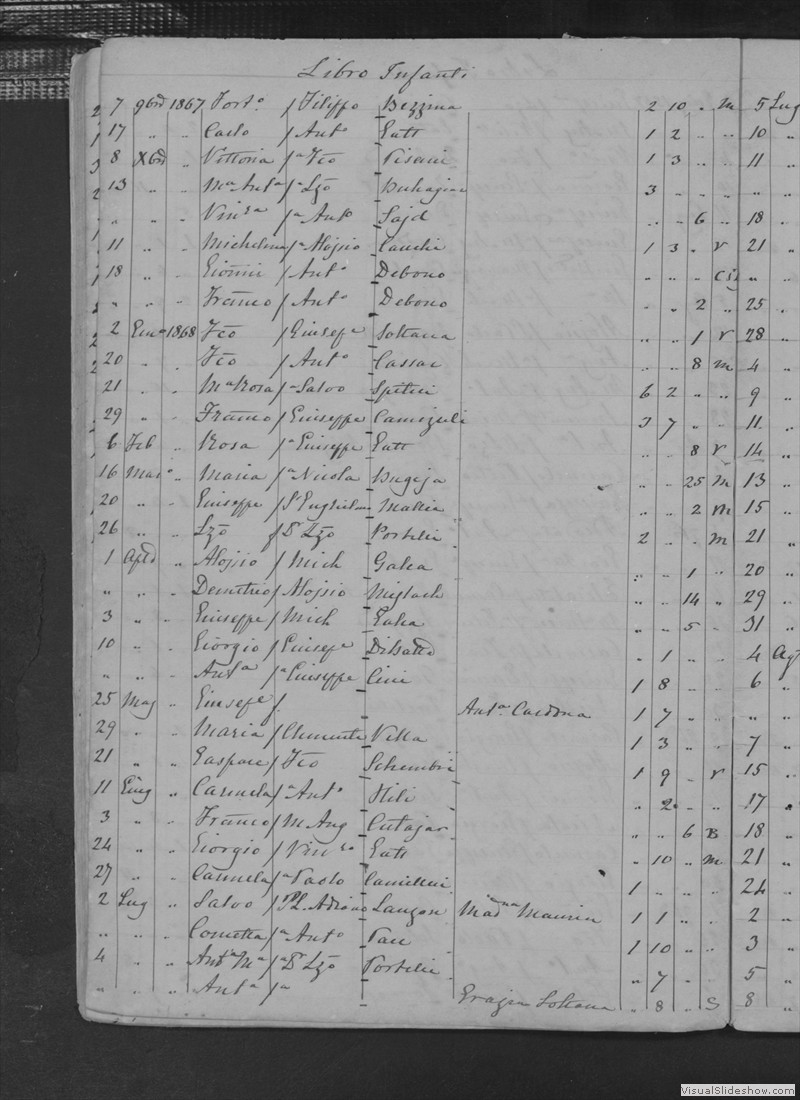 Libro Infanti
2 7 9bre 1867 Forto. / Filippo Bezzina 2 10 . m 5 Lug
1 17 " " Carlo / Anto Gatt 1 2 " " 10 "
3 8 Xbre " Vittoria /a Fco Pisani 1 3 " " 11 "
2 13 " " Ma Anta /a Lzo Buhagiar 3 " " " " "
" " " /a Anto Sajd " " 6 " 18 "
11 " " Michelina /a Aloisio 1 3 " r 21 "
18 " " Giovni / Anto Debono " " " "
" " " Franco / Anto Debono " " 2 " 25 "
2 Genn 1868 Fco / Giusepe Soltana " " 1 r 28 "
20 " " Fco / Anto Cassar " " 8 m 4 "
21 " " Ma Rosa /a Salvo Spiteri 6 2 " " 9 "
29 " " Franco / Giuseppe Camizuli 3 7 " " 11 "
6 Feb " Rosa /a Giuseppe Gatt " " 8 r 14 "
16 Maro " Maria /a Nicola Bugeja " " 25 m 13 "
20 " " Giuseppe / Guglielmo Mallia " " 2 m 15 "
26 " " Lzo / Dr Lzo Portelli 2 " " m 21 "
1 Aple " Aloisio / Mich Galea " " 1 " 20 "
" " " Demetrio / Aloisio " " 14 " 29 "
3 " " Giuseppe / Mich Galea " " 5 " 31 "
10 " " Giorgio / Giusepe " 1 " " 4 Agt
" " " Anta /a Giuseppe Cini 1 8 " " 6 "
25 Mag " Giusepe / Anta Cardona 1 7 " " " "
29 " " Maria / Clemente Vella 1 3 " " 7 "
21 " " Gaspare / Fco Schembri 1 9 " r 15 "
11 Giug " Carmela /a Anto Hili " 2 " " 17 "
3 " " Franco / M Ang Cutajar " " 6 B 18 "
24 " " Giorgio / Vinzo Gatt " 10 " m 21 "
27 " " Carmela /a Paolo Camilleri 1 " " " 24 "
2 Lug " Salvo / PL Adriano Lanzon Madna Maurin 1 1 " " 2 "
" " " Concetta /a Anto Pau 1 10 " " 3 "
4 " " Anta Ma /a Dr Lzo Portelli " 7 " " 5 "
" " " Anta /a Soltana " 8 " S 8 "
VisualSlideshow.com